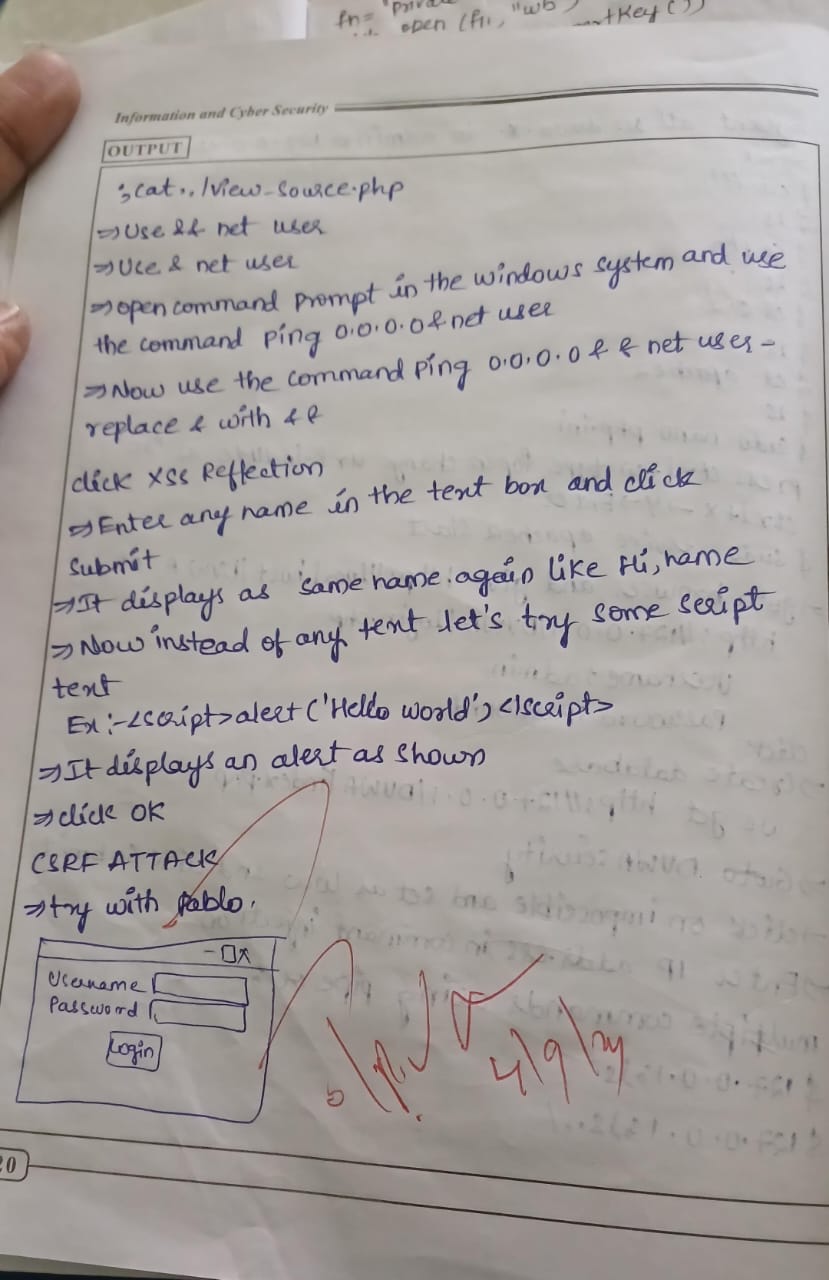 fn=
open (fn, "wb
Key ())
Information and Cyber Security
OUTPUT
;cat../view_source.php
⇒Use && net user
⇒Use & net user
⇒open command prompt in the windows system and use
the command ping 0.0.0.0&net user
⇒Now use the command ping 0.0.0.0 & & net user-
replace & with &&
click XSS Reflection
⇒Enter any name in the text box and click
Submit
⇒It displays as same name again like Hi, name
⇒Now instead of any text let's try some script
text
Ex:-<script>alert('Hello world')</script>
⇒It displays an alert as shown
⇒click OK
CSRF ATTACK
⇒try with pablo.
Username
Password
Login
4/9/24
20